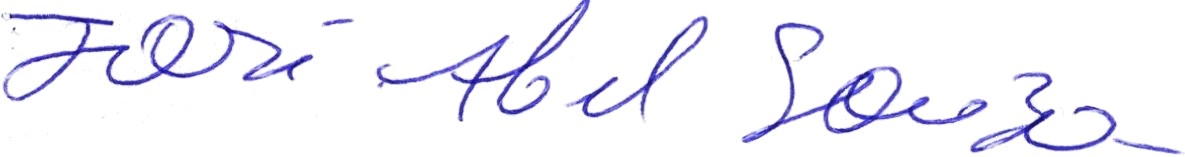 Jori Abel Souza